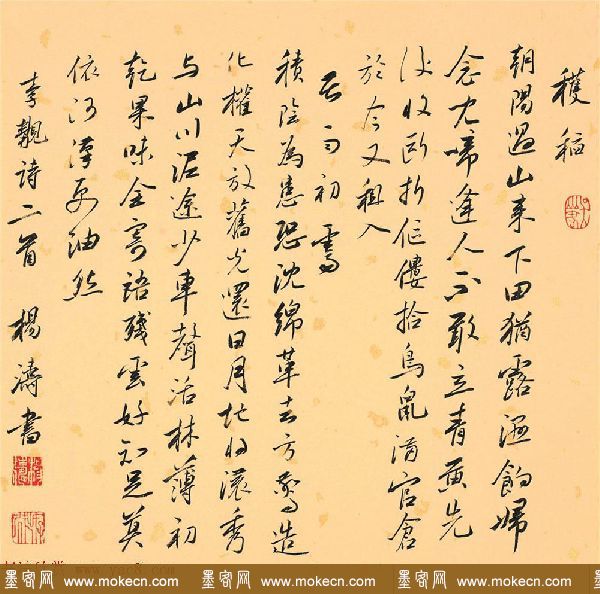 穫稻
朝陽過山来下田猶露濕餉婦
念兒啼逢人不敢立青黃先
後收斷折傴僂拾鳥鼠滿官倉
於今又租入
苦雨初霽
積陰為患恐沈綿革去方驚造
化權天放舊光還日月地将濃秀
与山川泥途少車聲活林薄初
乾果味全寄語殘雲好知足莫
依河漢更油然
李覯詩二首 楊濤書
墨客网 www.mokecn.com 墨客网 www.mokecn.com 墨客网 www.mokecn.com